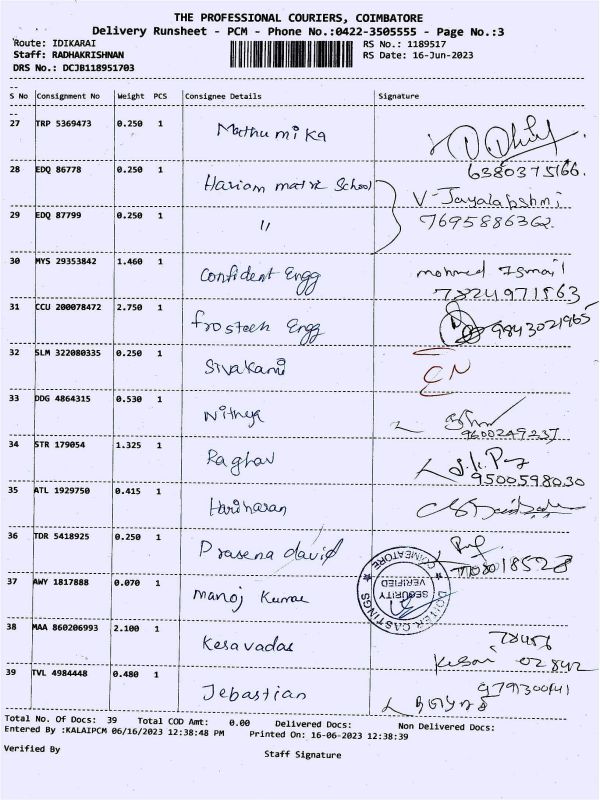 THE PROFESSIONAL COURIERS, COIMBATORE
Delivery Runsheet - PCM - Phone No.:0422-3505555 - Page No.:3
Route: IDIKARAI RS No.: 1189517
Staff: RADHAKRISHNAN RS Date: 16-Jun-2023
DRS No.: DCJB118951703
S No Consignment No Weight PCS Consignee Details Signature
27 TRP 5369473 0.250 1 Mathumika
6380375166.
28 EDQ 86778 0.250 1 Hariom matric School V-Jayalakshmi
29 EDQ 87799 0.250 1 " 7695886362.
30 MYS 29353842 1.460 1 Confident Engg mohmed Ismail
7824971563
31 CCU 200078472 2.750 1 frosteeh Engg 9843021965
32 SLM 322080335 0.250 1 Sivakami EN
33 DDG 4864315 0.530 1 Nithya
9600249237
34 STR 179054 1.325 1 Raghav
9500598030
35 ATL 1929750 0.415 1 Hariharan
36 TDR 5418925 0.250 1 Prasena david
37 AWY 1817888 0.070 1 Manoj Kumar
SECURITY VERIFIED
COIMBATORE
38 MAA 860206993 2.100 1 Kesavadas
02842
39 TVL 4984448 0.480 1 Jebastian
Total No. Of Docs: 39 Total COD Amt: 0.00 Delivered Docs: Non Delivered Docs:
Entered By :KALAIPCM 06/16/2023 12:38:48 PM Printed On: 16-06-2023 12:38:39
Verified By Staff Signature